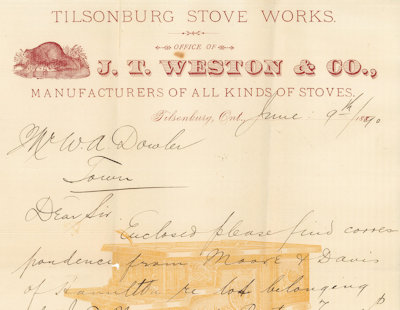 TILSONBURG STOVE WORKS.
OFFICE OF
J. T. WESTON & CO.,
MANUFACTURERS OF ALL KINDS OF STOVES.
Tilsonburg, Ont., June 9th/1890
Mr W. A. Dowler
Town
Dear Sir
Enclosed please find corres
pondence from Moore & Davis
of Hamilton re lot belonging